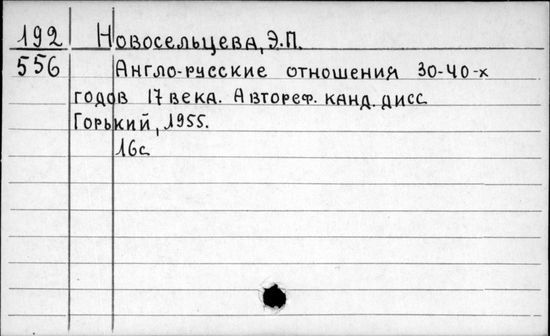 192 Новосельцева, Э.П.
556 Англо-русские отношения 30-40-х
годов 17 века. Автореф. канд. дисс
Горький, 1955.
16с